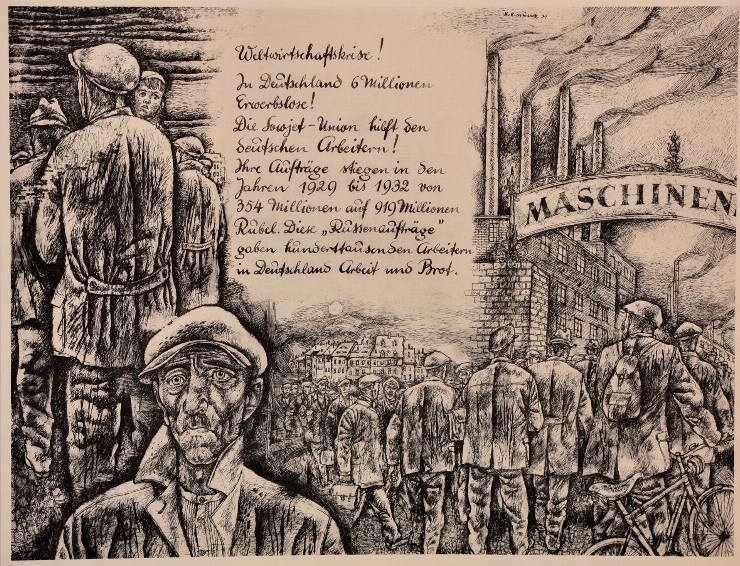 Weltwirtschaftskrise!
In Deutschland 6 Millionen
Erwerbslose!
Die Sowjet-Union hilft den
deutschen Arbeitern!
Ihre Aufträge stiegen in den
Jahren 1929 bis 1932 von
354 Millionen auf 919 Millionen
Rubel. Diese „Russenaufträge"
gaben hunderttausenden Arbeitern
in Deutschland Arbeit und Brot.
MASCHINEN